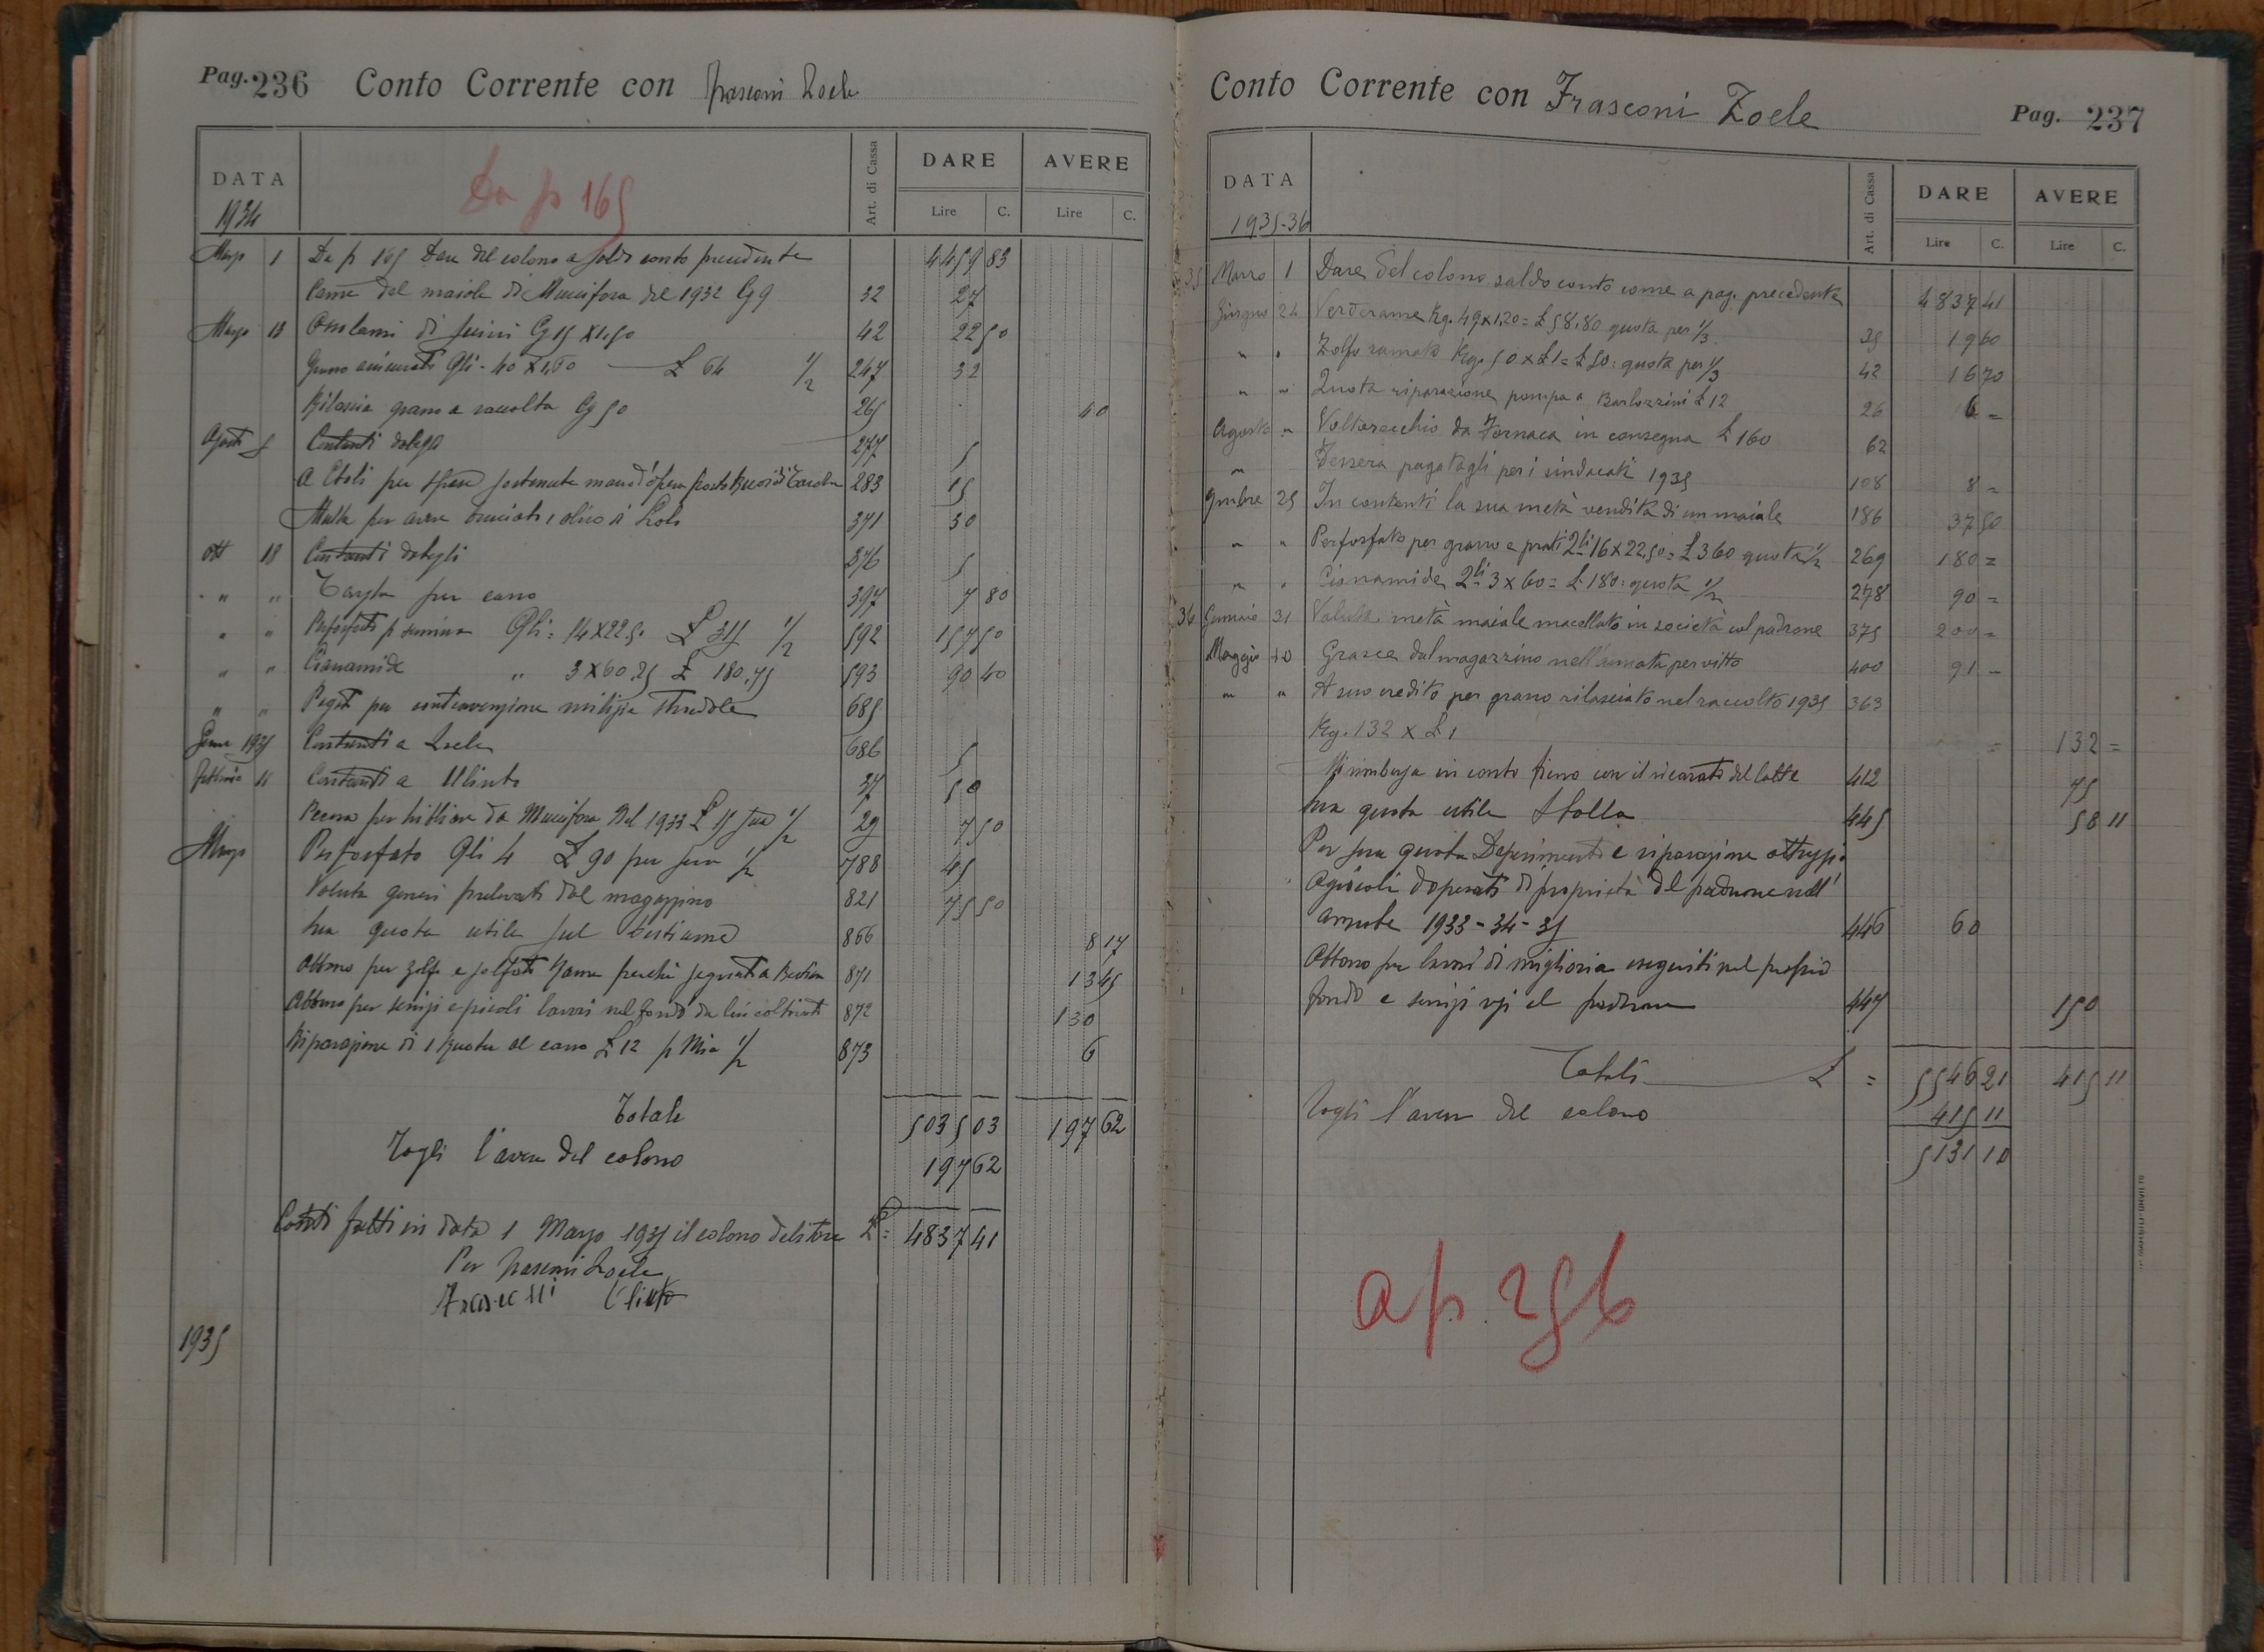 Pag. 236 Conto Corrente con Frasconi Zoele
DATA Art. di Cassa DARE AVERE
Lire C. Lire C.
1934 Da p 165
Marzo 1 Da p 165 Dare del colono a saldo conto precedente 4459 83
Carne del maiale di Mucifora del 1932 Cg 9 32 27
Marzo 18 di Cg 15 X 1,50 42 22 50
Grano Qli - 40 X 1,60 — £ 64 1/2 247 32
Rilascia grano a raccolta Cg 50 265 40
Agosto 5 Contanti datogli 277 5
A Etoli per spese sostenute mano d'opera 283 15
Multa per avere bruciato 1 olivo di 371 30
Ott 18 Contanti datogli 376 5
" " Targha per carro 397 7 80
" " Perfosfato p semina Qli = 14 X 22.50 £ 315 1/2 592 157 50
" " Cianamide " 3 X 60,25 £ 180,75 593 90 40
" " Pagato per contravvenzione milizia stradale 685
Genn 1935 Contanti a Zoele 686 5
Febbraio 11 Contanti a Ulinto 27 50
Pecora per da Mucifora Nel 1933 £ 15 sua 1/2 29 7 50
Marzo Perfosfato Qli 4 £ 90 per sua 1/2 788 45
Valuta generi prelevati dal magazzino 821 75 50
Sua quota utile sul bestiame 866 8 17
Abbono per zolfo e solfato rame perchè segnati a 871 13 45
Abbono per servizi e piccoli lavori nel fondo da lui coltivato 872 130
Riparazione di 1 Ruota al carro £ 12 p Mia 1/2 873 6
Totale 5035 03 197 62
Togli l'avere del colono 197 62
Conti fatti in data 1 Marzo 1935 il colono debitore £ = 4837 41
Per Frasconi Zoele
Frasconi Ulinto
1935
Conto Corrente con Frasconi Zoele Pag. 237
DATA Art. di Cassa DARE AVERE
Lire C. Lire C.
1935-36
35 Marzo 1 Dare del colono saldo conto come a pag. precedente 4837 41
Giugno 24 Verderame Kg. 49 x 1,20 = £ 58.80 quota per 1/3 25 19 60
" " Zolfo ramato Kg. 50 x £ 1 = £ 50 : quota per 1/3 42 16 70
" " Quota riparazione pompa a Barlozzini £ 12 26 6 =
Agosto " Voltorecchio da Fornaca in consegna £ 160 62
" Tessera pagatagli per i sindacati 1935 108 8 =
9mbre 25 In contanti la sua metà vendita di un maiale 186 37 50
" " Perfosfato per grano e prati Qli 16 x 22,50 = £ 360 quota 1/2 269 180 =
" " Cianamide Qli 3 x 60 = £ 180 : quota 1/2 278 90 =
36 Gennaio 31 Valuta metà maiale macellato in società col padrone 375 200 =
Maggio 10 Grasce dal magazzino nell'annata per vitto 400 91 -
" " A suo credito per grano rilasciato nel raccolto 1935 363
Kg. 132 x £ 1 132 =
Si rimborsa in conto fieno con il ricavato del latte 412 75
Sua quota utile Stalla 445 58 11
Per sua quota Deperimento e riparazione attrezzi
Agricoli doperati di proprietà del padrone nell'
annate 1933 - 34 - 35 446 60
Abbono per lavori di miglioria eseguiti nel proprio
fondo e servizi vari il padrone 447 150
Totali £ = 5546 21 415 11
Togli l'avere del colono 415 11
5131 10
a p. 256